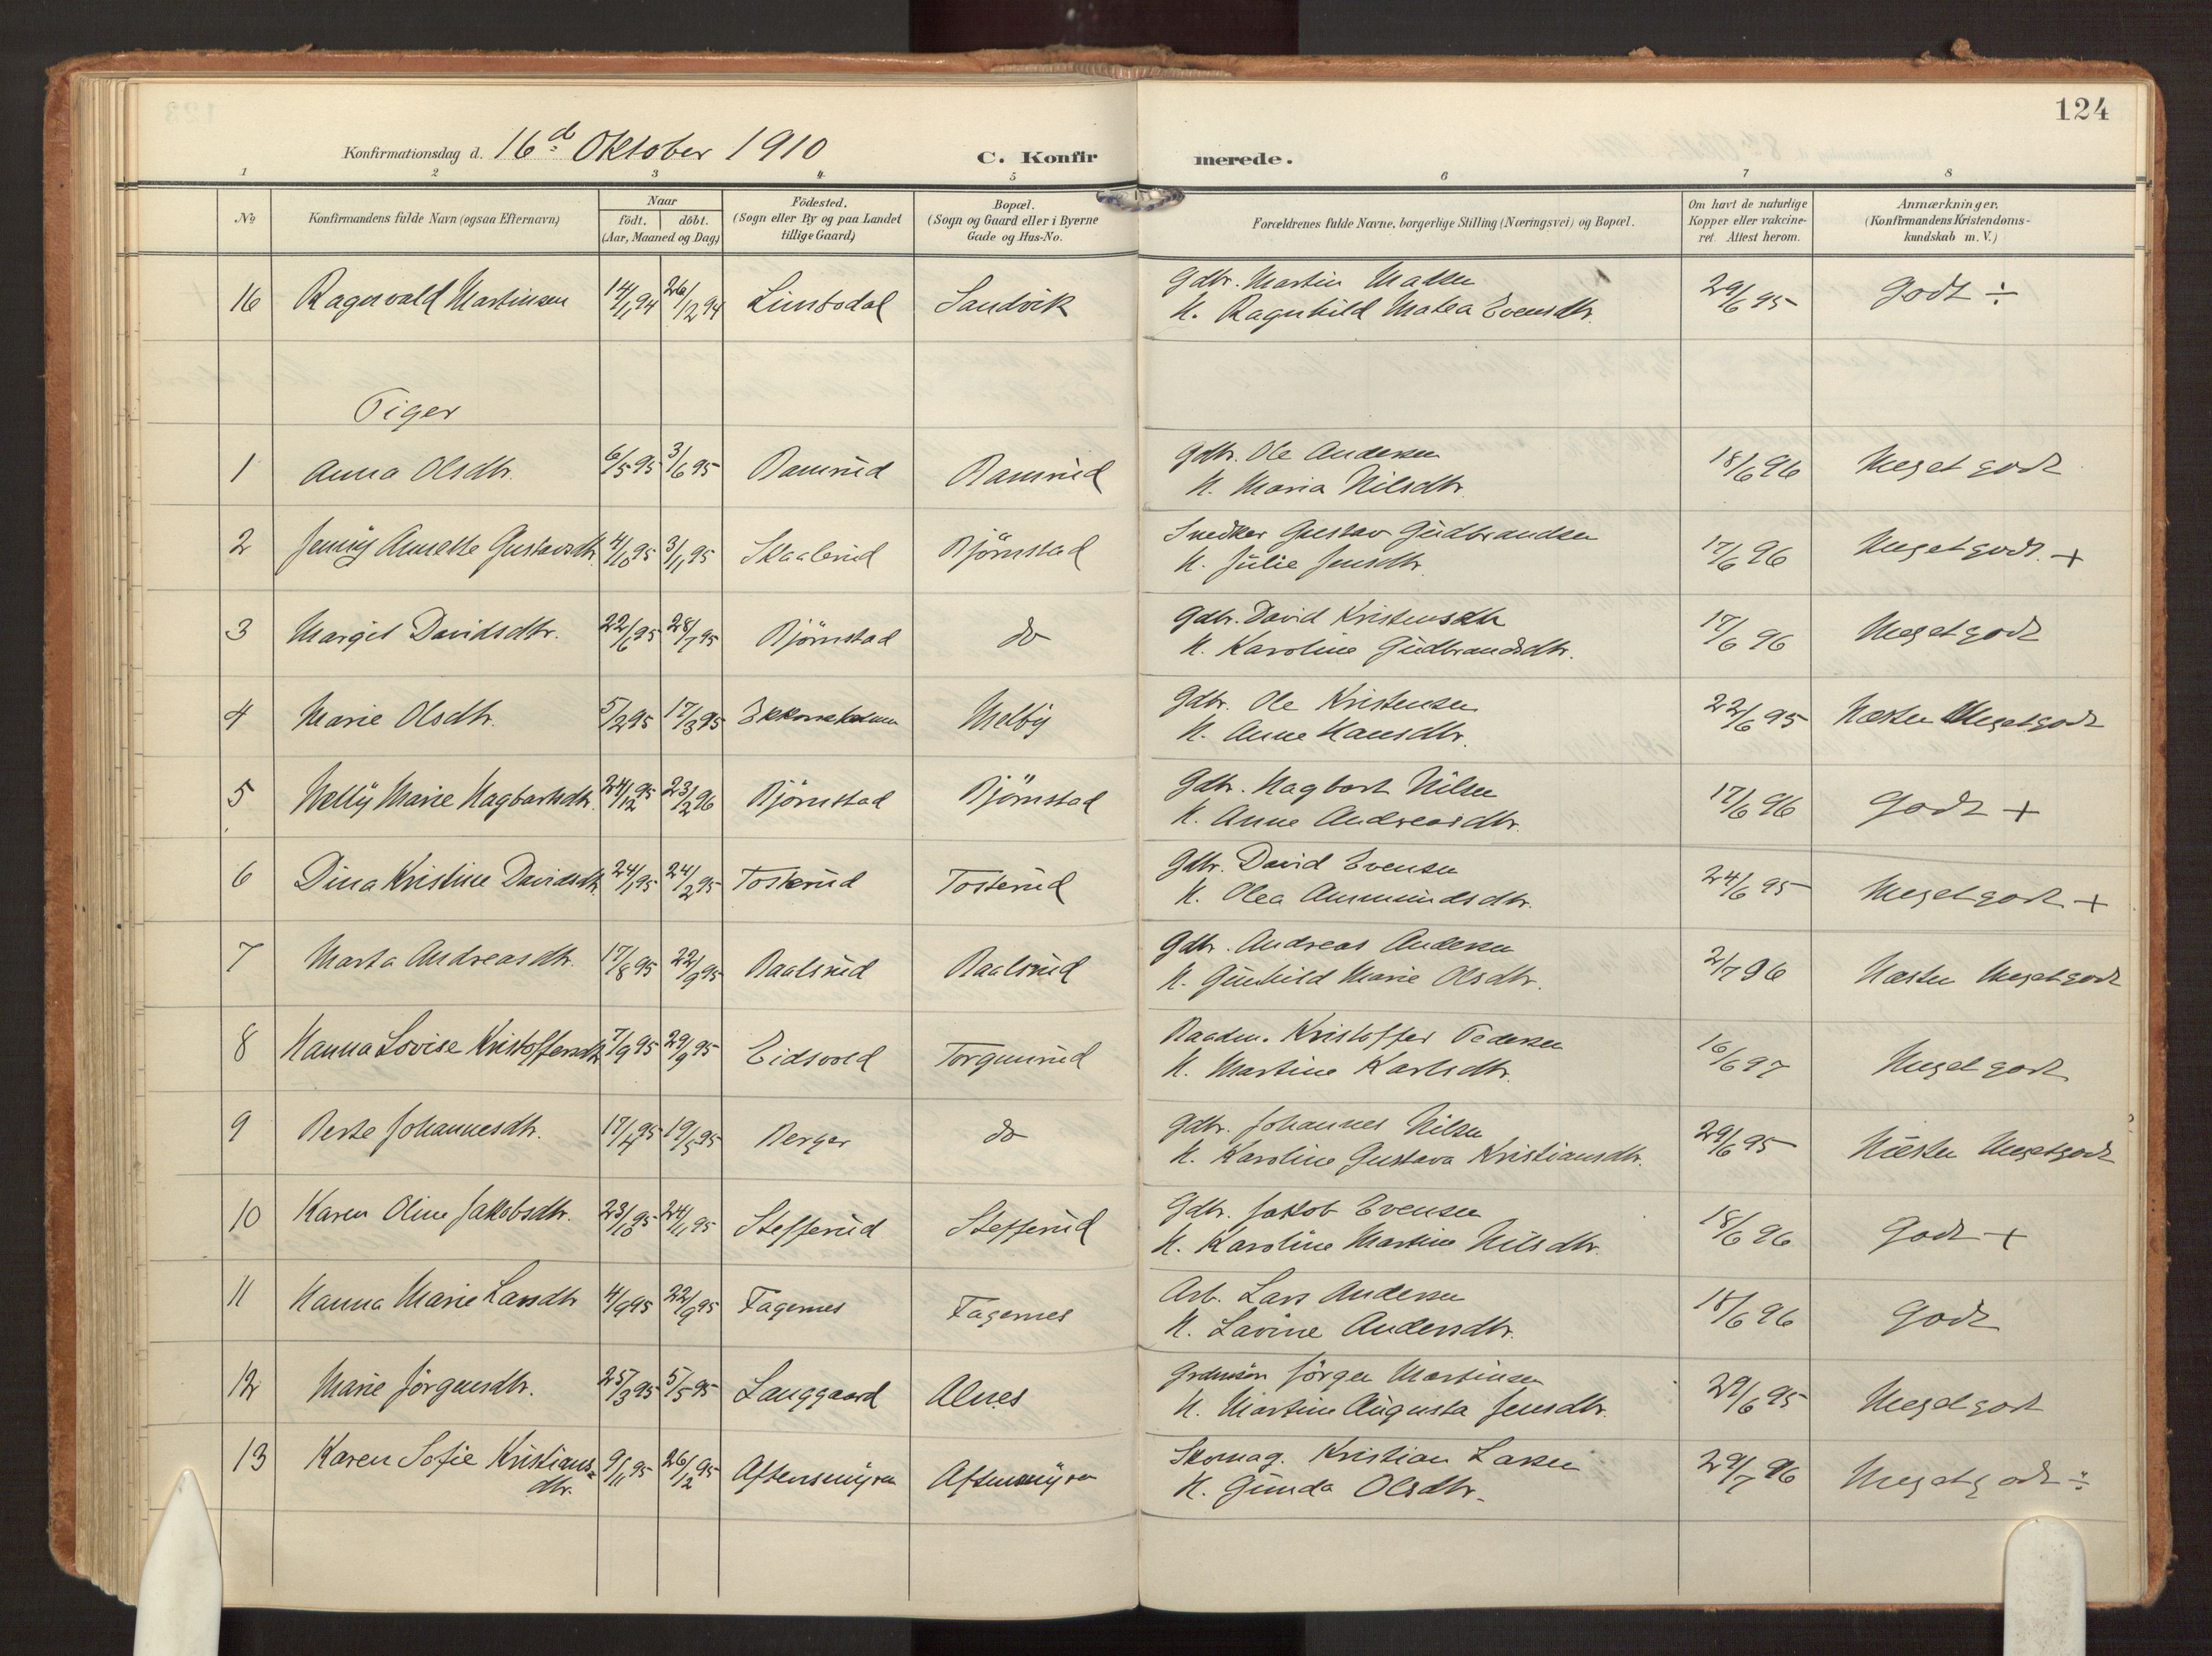 124
Konfirmationsdag d. 16d Oktober 1910
C. Konfirmerede.
1 2 3 4 5 6 7 8
No
Konfirmandens fulde Navn (ogsaa Efternavn)
Naar
födt. döbt.
(Aar, Maaned og Dag)
Födested.
(Sogn eller By og paa Landet
tillige Gaard)
Bopæl.
(Sogn og Gaard eller i Byerne
Gade og Hus-No.
Forældrenes fulde Navne, borgerlige Stilling (Næringsvei) og Bopæl.
Om havt de naturlige
Kopper eller vakcine-
ret. Attest herom.
Anmærkninger,
(Konfirmandens Kristendoms-
kundskab m. V.)
16 Ragnvald Martinsen 14/1 94 26/12 94 Linsbodal Sandvik Gdbr. Martin
H. Ragnhild Matea Evensdtr. 29/6 95 Godt ÷
Piger
1 Anna Olsdtr. 6/5 95 3/6 95 Ramsrud Ramsrud Gdbr. Ole Andersen
H. Maria Nilsdtr. 18/6 96 Meget godt
2 Jenny Annette Gustavsdtr. 4/10 95 3/11 95 Skaalerud Björnstad Snedker Gustav Gudbrandsen
H. Julie Jensdtr. 17/6 96 Meget godt. +
3 Margit Davidsdtr. 22/6 95 28/7 95 Björnstad do Gdbr. David Kristensen
H. Karoline Gudbrandsdtr. 17/6 96 Meget godt
4 Marie Olsdtr. 5/2 95 17/3 95 Ekkornholmen Melby Gdbr. Ole Kristensen
H. Anne Hansdtr. 22/6 95 Næsten Meget godt
5 Nelly Marie Hagbartsdtr. 24/12 95 23/2 96 Björnstad Björnstad Gdbr. Hagbart Nilsen
H. Anne Andreasdtr. 17/6 96 Godt +
6 Dina Kristine Davidsdtr. 24/1 95 24/2 95 Tosterud Tosterud Gdbr. David Evensen
H. Olea Ammundsdtr. 24/6 95 Meget godt +
7 Marta Andreasdtr. 17/8 95 22/9 95 Raalsrud Raalsrud Gdbr. Andreas Andersen
H. Gunhild Marie Olsdtr. 2/7 96 Næsten Meget godt
8 Hanna Lovise Kristoffersdtr. 7/9 95 29/9 95 Eidsvold Torgunrud Kristoffer Pedersen
H. Martine Karlsdtr. 16/6 97 Meget godt
9 Berte Johannesdtr. 17/4 95 19/5 95 Berger do Gdbr. Johannes Nilsen
H. Karoline Gustava Kristiansdtr. 29/6 95 Næsten Meget godt
10 Karen Oline Jakobsdtr. 23/10 95 24/11 95 Stefferud Stefferud Gdbr. Jakob Evensen
H. Karoline Martine Nilsdtr. 18/6 96 Godt +
11 Hanna Marie Larsdtr 4/9 95 22/9 95 Fagernes Fagernes Arb. Lars Andersen
H. Lavine Andersdtr. 18/6 96 Godt
12 Marie Jörgensdtr. 25/3 95 5/5 95 Langgaard Alnes Jörgen Martinsen
H. Martine Augusta Jensdtr. 29/6 95 Meget godt
13 Karen Sofie Kristians=
dtr. 9/11 95 26/12 95 Aftensmyren Aftensmyren Skomag. Kristian Larsen
H. Gunda Olsdtr. 29/7 96 Meget godt ÷